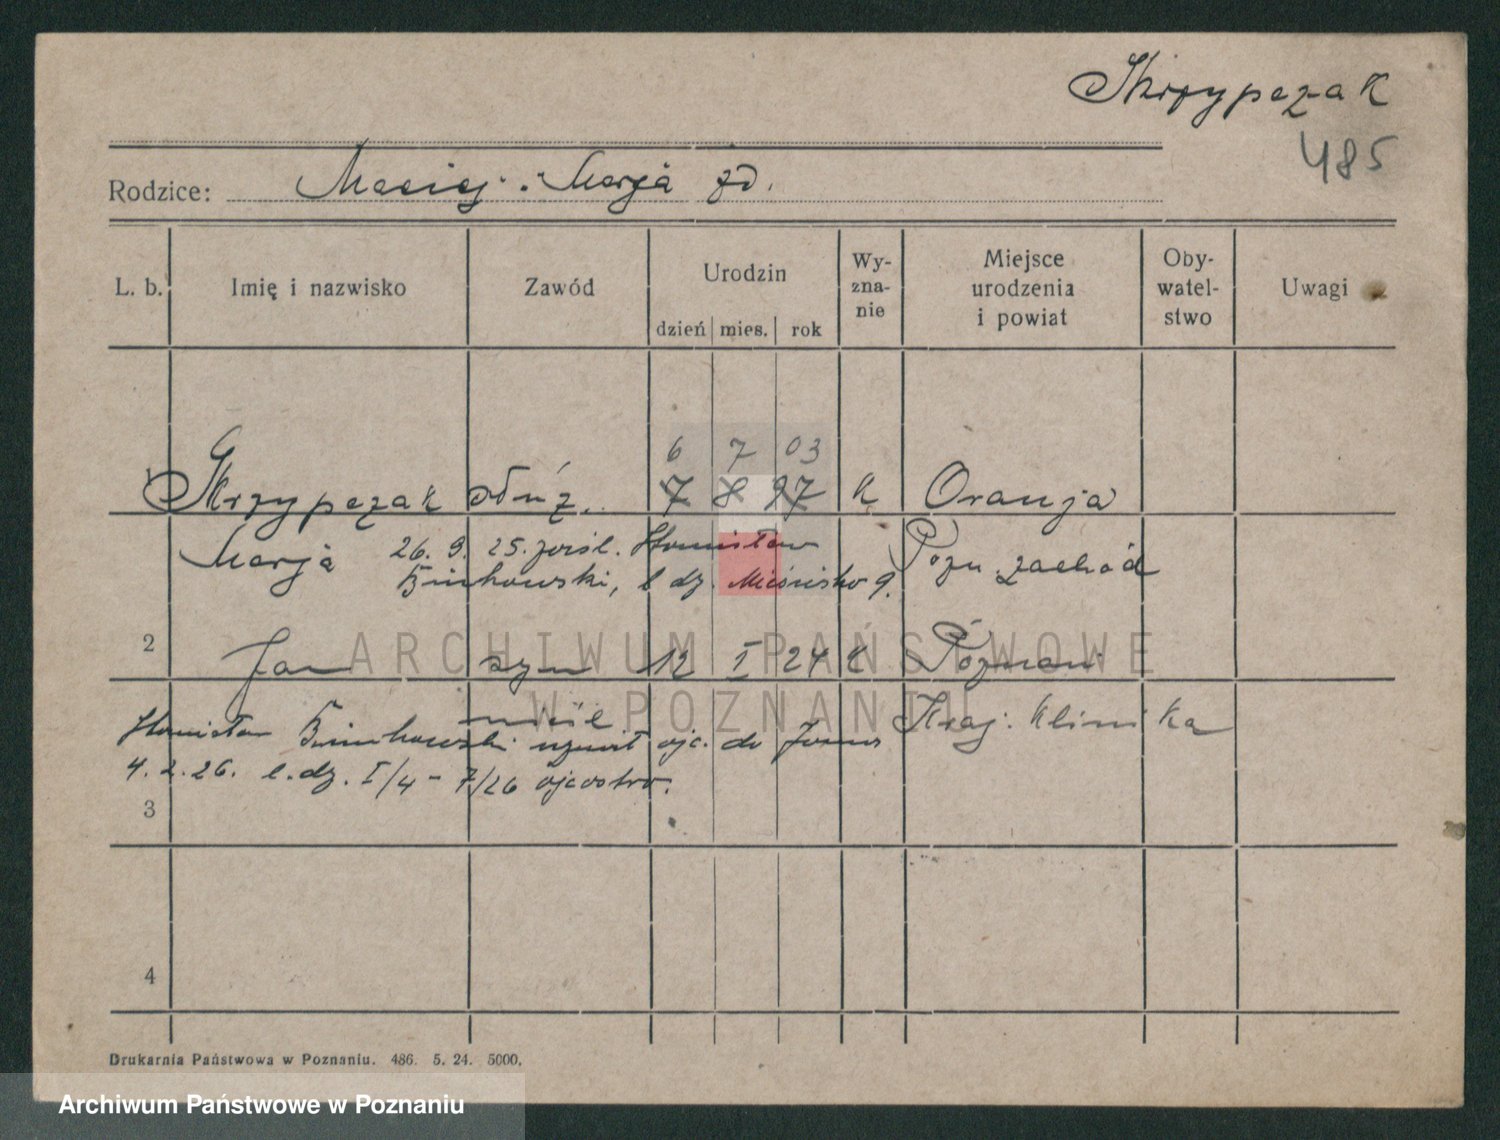 Skrzypczak
485
Rodzice: Maciej. Marja zd.
L. b. Imię i nazwisko Zawód Urodzin Wyznanie Miejsce urodzenia i powiat Obywatelstwo Uwagi
dzień mies. rok
6 7 03
1 Skrzypczak służ. 7 8 97 k Oranja
Marja 26. 9. 25. Stanisław Pozn. zachód
l dz. 9.
2 Jan syn 12 I 24 k Poznań
nieśl Kraj. Klinika
Stanisław ojc. do Jana
4. 2. 26. l. dz. I/4 - 7/26 ojcostwo.
3
4
Drukarnia Państwowa w Poznaniu. 486. 5. 24. 5000.
ARCHIWUM PAŃSTWOWE
W POZNANIU
Archiwum Państwowe w Poznaniu